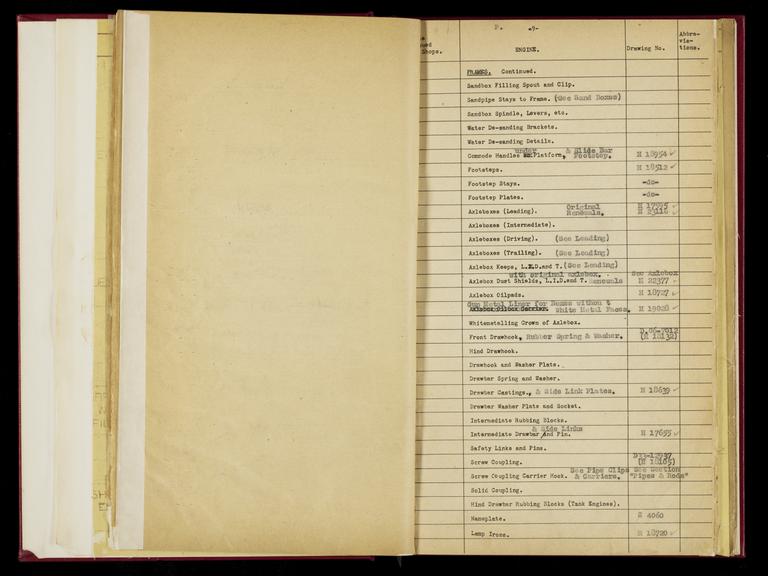 P. -9-
Shops. ENGINE. Drawing No. Abbre-
via-
tions.
FRAMES. Continued.
Sandbox Filling Spout and Clip.
Sandpipe Stays to Frame. (See Sand Boxes)
Sandbox Spindle, Levers, etc.
Water De-sanding Brackets.
Water De-sanding Details.
under & Slide Bar
Commode Handles Platform, Footstep. H 18954 ✓
Footsteps. H 18512 ✓
Footstep Stays. -do-
Footstep Plates. -do-
Axleboxes (Leading). Original
Renewals.
Axleboxes (Intermediate).
Axleboxes (Driving). (See Leading)
Axleboxes (Trailing). (See Leading)
Axlebox Keeps, L.I.D. and T. (See Leading)
with original axlebox. See Axlebox
Axlebox Dust Shields, L.I.D. and T. Renewals H 22377 ✓
Axlebox Oilpads. H 18727 ✓
Gun Metal Liner for Boxes without
Axlebox Oilbox Carrier. White Metal Faces. H 19828 ✓
Whitemetalling Crown of Axlebox.
D.06-7012
Front Drawhook, Rubber Spring & Washer. (H 18132)
Hind Drawhook.
Drawhook and Washer Plate.
Drawbar Spring and Washer.
Drawbar Castings., & Side Link Plates. H 18639 ✓
Drawbar Washer Plate and Socket.
Intermediate Rubbing Blocks.
& Side Links
Intermediate Drawbar and Pin. H 17655 ✓
Safety Links and Pins.
Screw Coupling. (H 18165)
See Pipe Clips See Section
Screw Coupling Carrier Hook. & Carriers. "Pipes & Rods"
Solid Coupling.
Hind Drawbar Rubbing Blocks (Tank Engines).
Nameplate. 4060
Lamp Irons. H 18720 ✓